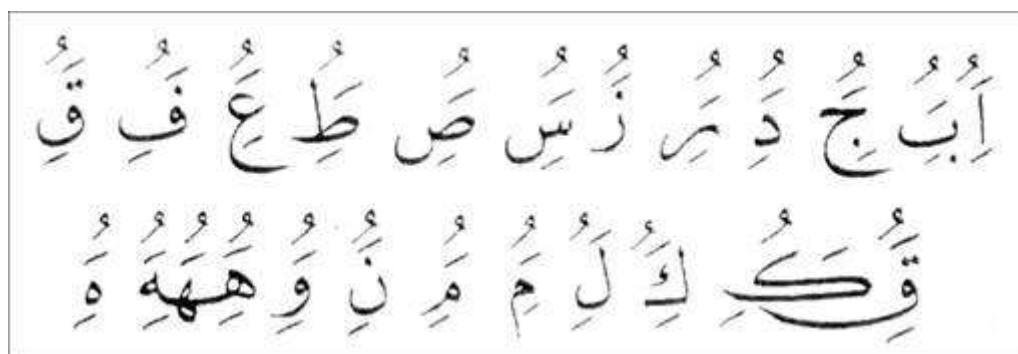 اَُِ بَُِ جَُِ دَُِ رَُِ زَُِ سَُِ صَُِ طَُِ عَُِ فَُِ قَُِ
قَُِ كَُِ كَُِ لَُِ مَُِ مَُِ نَُِ وَُِ هَُِهَُِهَُِ هَُِ